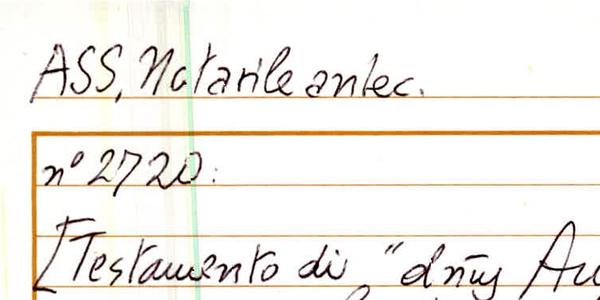 ASS, Notarile antec.
n° 2720:
[Testamento di "dn̄us Au